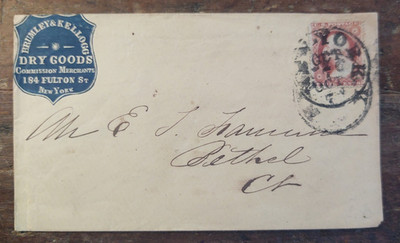 BRUMLEY & KELLOGG
DRY GOODS
COMMISSION MERCHANTS
184 FULTON ST
NEW YORK
YORK
Mr E
Bethel
Ct